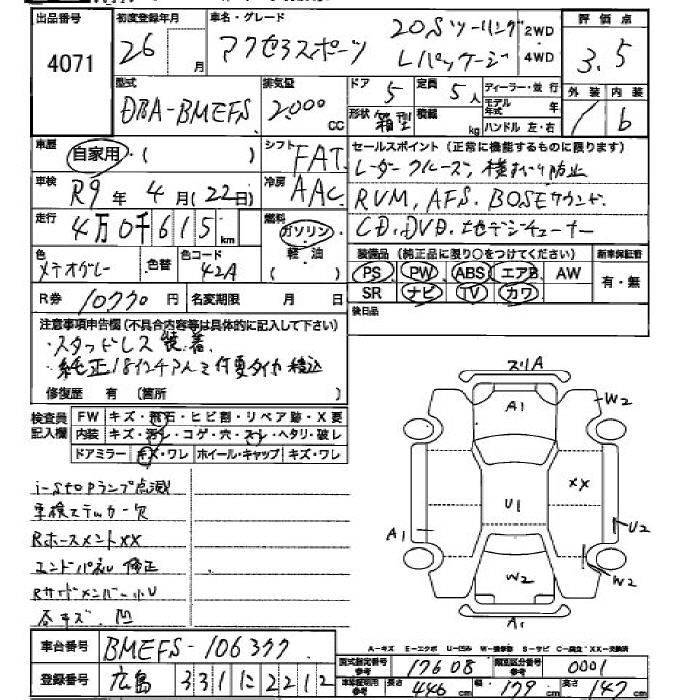 出品番号 4071
初度登録年月 26 月
車名・グレード アクセラスポーツ 20Sツーリング Lパッケージ
2WD
4WD
評価点 3.5
外装 内装
/ 6
型式 DBA-BMEFS
排気量 2000 cc
ドア 5 定員 5人
形状 箱型 積載 kg
ディーラー・並行
モデル年式 年
ハンドル 左・右
車歴 自家用・( )
シフト FAT
セールスポイント (正常に機能するものに限ります)
レーダークルーズ, 横すべり防止
車検 R9年4月(22日)
冷房 AAC
RVM, AFS, BOSEサウンド.
走行 4万0千615km
燃料 ガソリン・軽・油( )
CD, DVD, 地デジチューナー
色 メテオグレー 色替 色コード 42A
装備品 (純正品に限り○をつけてください)
PS PW ABS エアB AW
SR ナビ TV カワ
新車保証書
有・無
R券 10770円 名変期限 月 日
後日品
注意事項申告欄(不具合内容等は具体的に記入して下さい)
・スタッドレス装着、
・純正18インチアルミ付夏タイヤ積込
修復歴 有 (箇所 )
検査員記入欄
FW キズ・飛石・ヒビ割・リペア跡・X要
内装 キズ・汚レ・コゲ・穴・スレ・ヘタリ・破レ
ドアミラー キズ・ワレ ホイール・キャップ キズ・ワレ
i-stopランプ点滅
車検ステッカー欠
RホースメントXX
エンドパネル修正
Rサイドメンバー小U
各キズ. 凹
スリA
A1
W2
XX
A1
U1
U2
W2
W2
A1
A-キズ E-エクボ U-凹み W-補修跡 S-サビ C-腐食 XX-交換済
車台番号 BMEFS-106377
登録番号 広島 331 に 2212
型式指定番号参考 17608 類別区分番号参考 0001
車検証明用参考 長さ 446 cm 幅 179 cm 高さ 147 cm